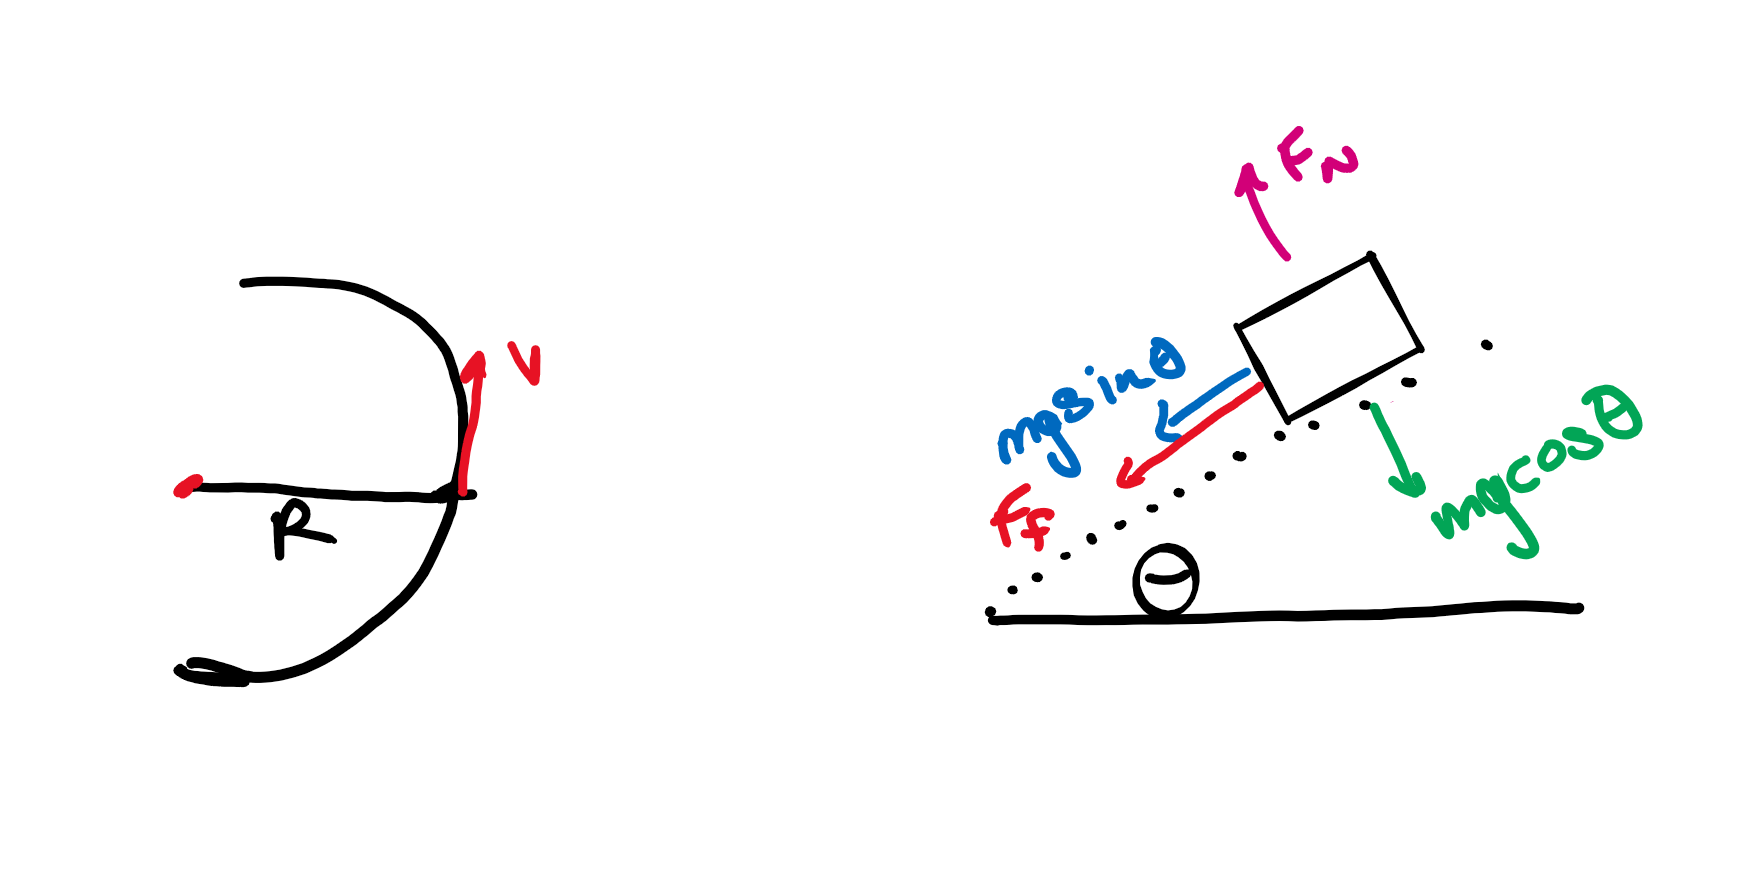 V
R
F_N
mgsinθ
F_f
mgcosθ
θ